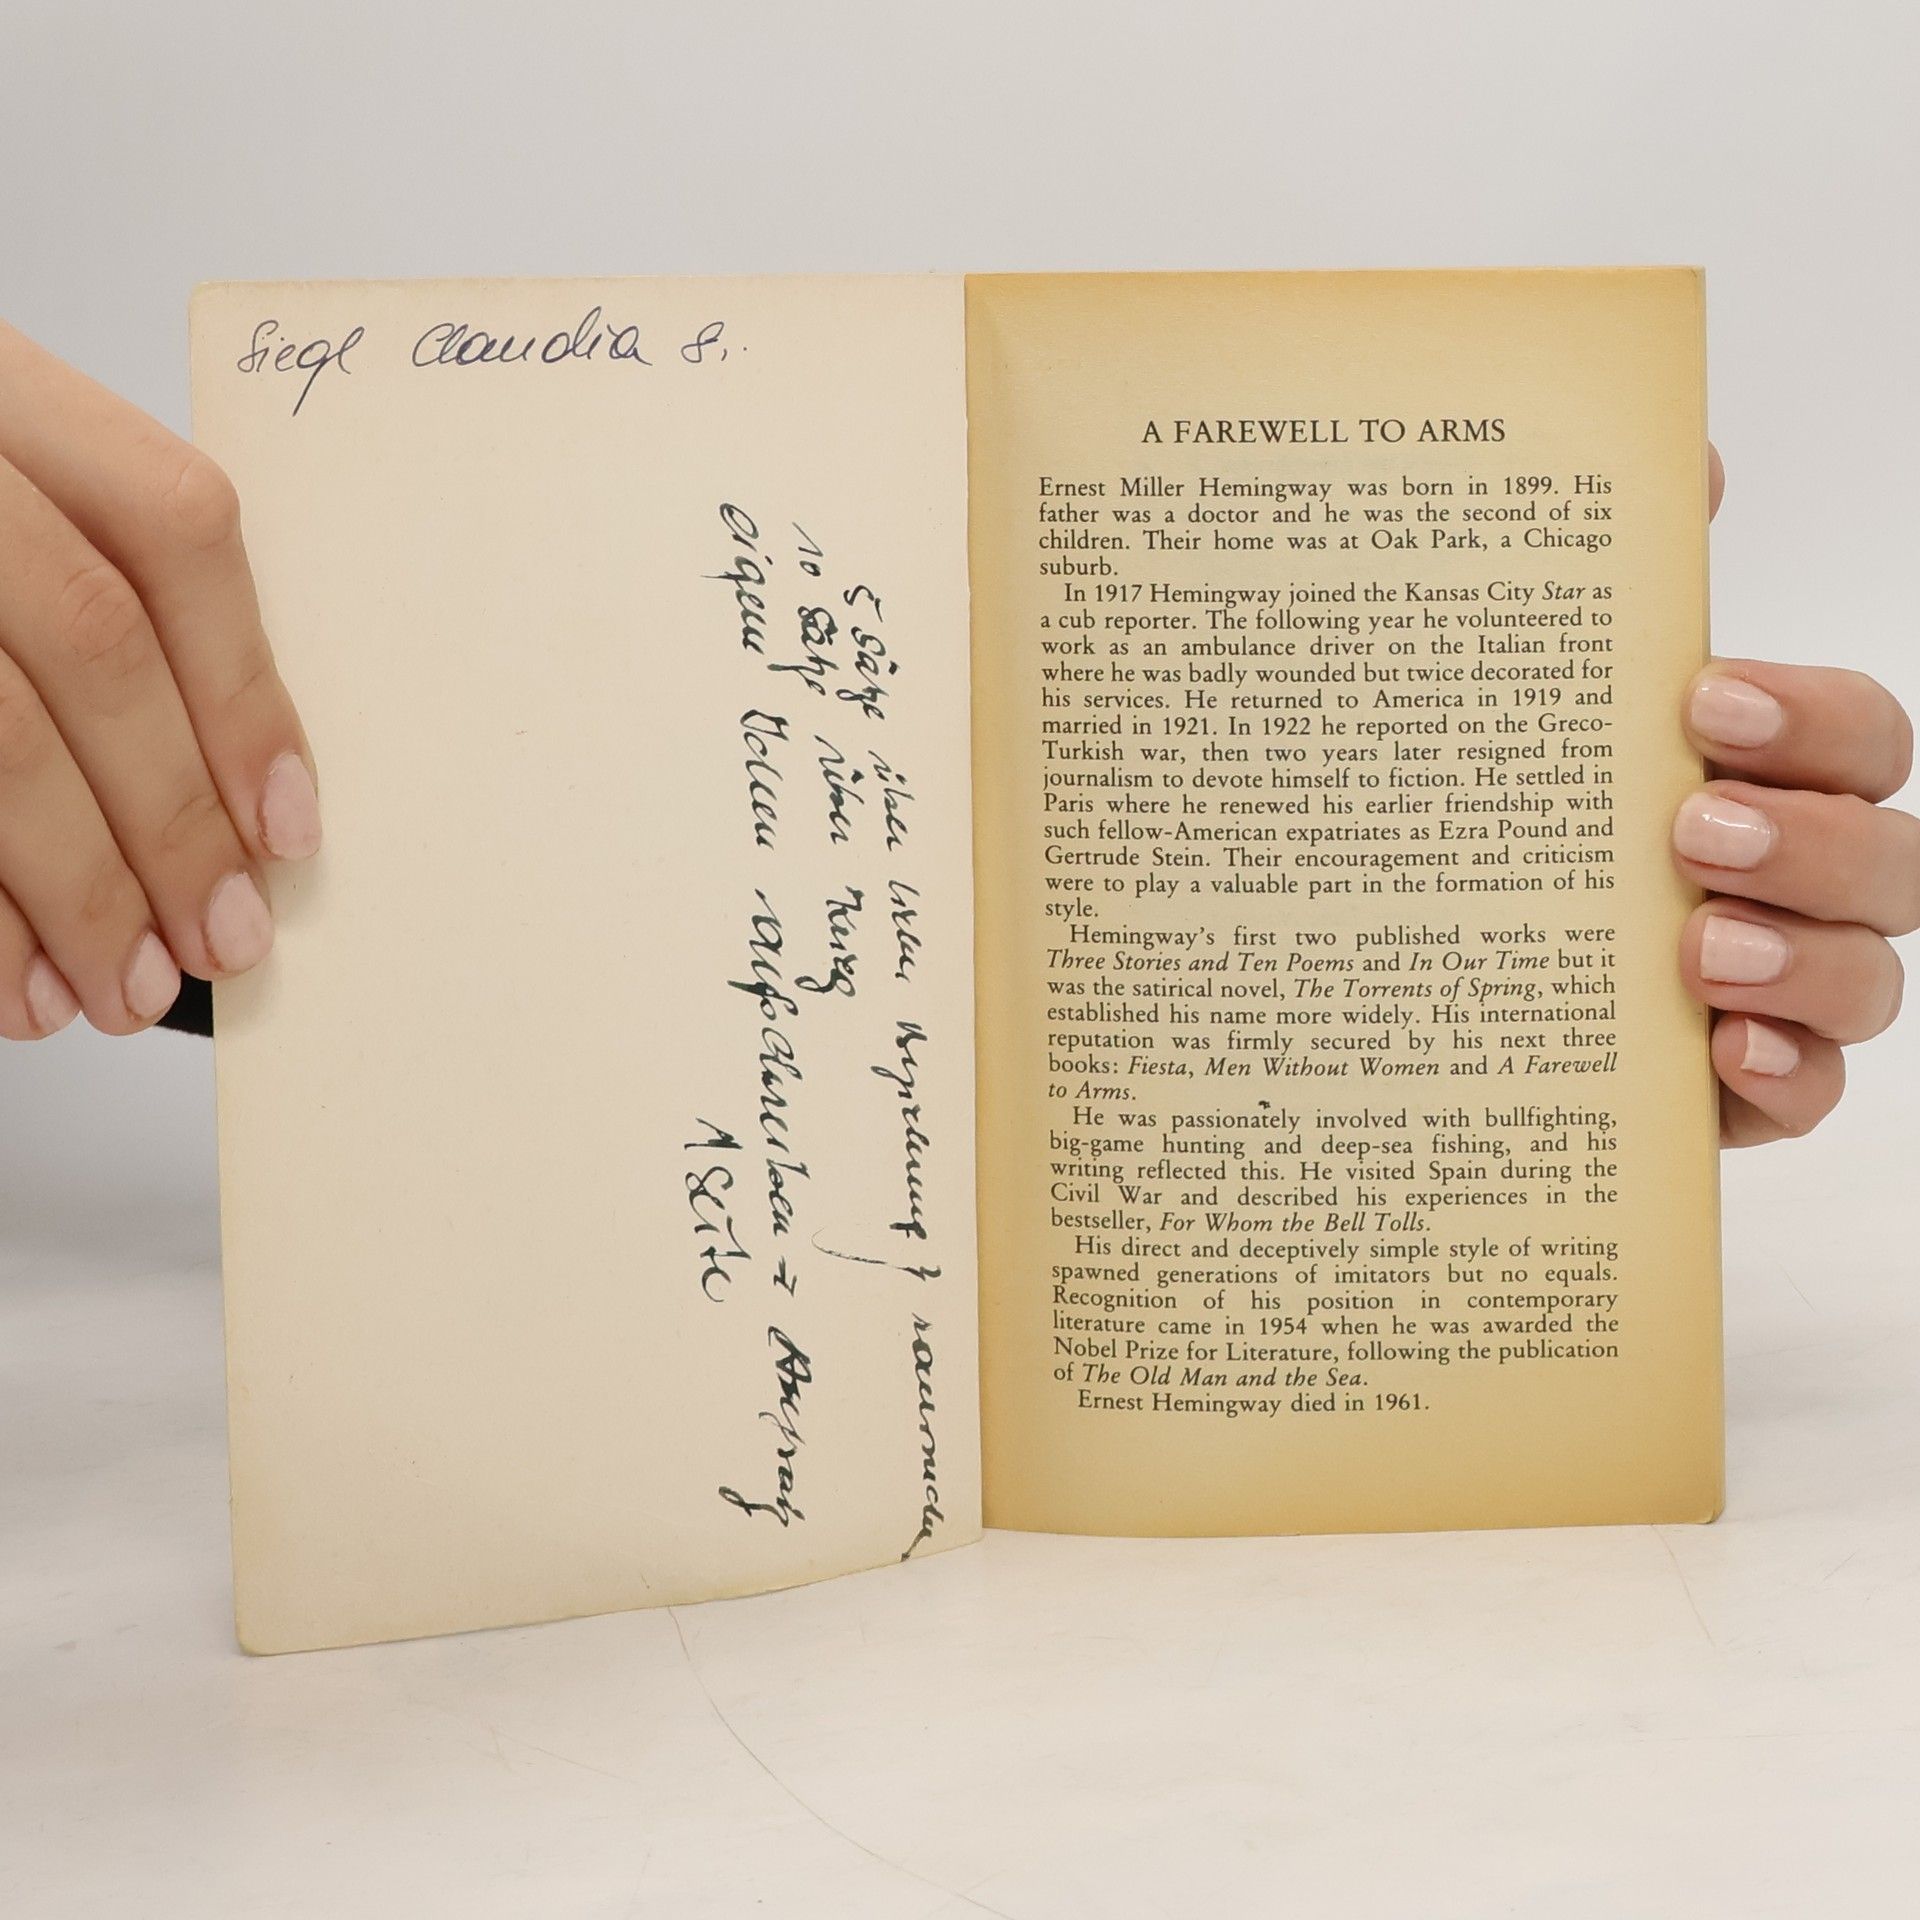 Siegl Claudia 8.
5 Sätze über
10 Sätze über Krieg
eigene Ideen aufschreiben →
1 Seite
A FAREWELL TO ARMS
Ernest Miller Hemingway was born in 1899. His
father was a doctor and he was the second of six
children. Their home was at Oak Park, a Chicago
suburb.
In 1917 Hemingway joined the Kansas City Star as
a cub reporter. The following year he volunteered to
work as an ambulance driver on the Italian front
where he was badly wounded but twice decorated for
his services. He returned to America in 1919 and
married in 1921. In 1922 he reported on the Greco-
Turkish war, then two years later resigned from
journalism to devote himself to fiction. He settled in
Paris where he renewed his earlier friendship with
such fellow-American expatriates as Ezra Pound and
Gertrude Stein. Their encouragement and criticism
were to play a valuable part in the formation of his
style.
Hemingway's first two published works were
Three Stories and Ten Poems and In Our Time but it
was the satirical novel, The Torrents of Spring, which
established his name more widely. His international
reputation was firmly secured by his next three
books: Fiesta, Men Without Women and A Farewell
to Arms.
He was passionately involved with bullfighting,
big-game hunting and deep-sea fishing, and his
writing reflected this. He visited Spain during the
Civil War and described his experiences in the
bestseller, For Whom the Bell Tolls.
His direct and deceptively simple style of writing
spawned generations of imitators but no equals.
Recognition of his position in contemporary
literature came in 1954 when he was awarded the
Nobel Prize for Literature, following the publication
of The Old Man and the Sea.
Ernest Hemingway died in 1961.